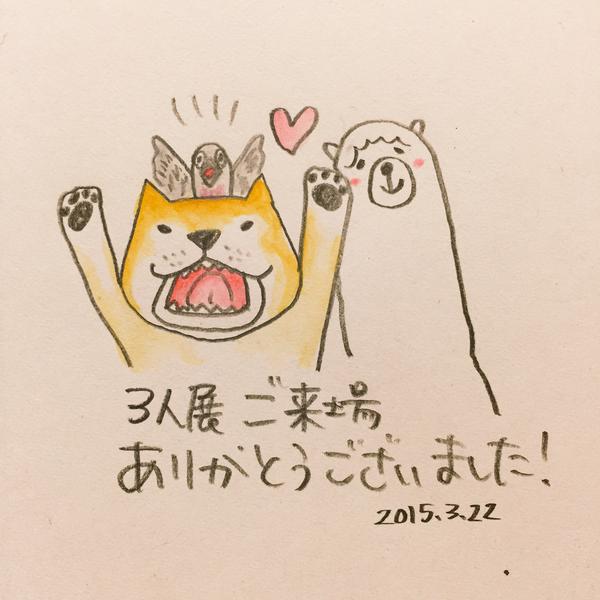 3人展 ご来場
ありがとうございました!
2015.3.22